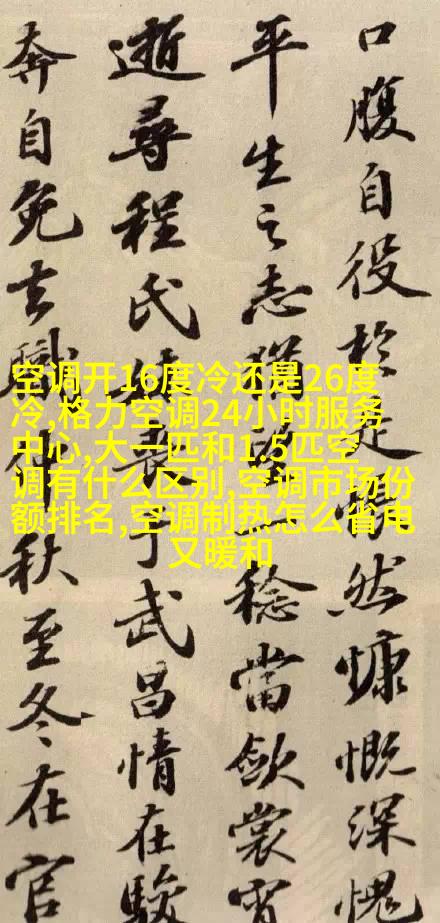 口腹自役於是悵然慷慨深愧
平生之志猶望一稔當斂裳宵
逝尋程氏妹喪于武昌情在駿
奔自免去職仲秋至冬在官
空调开16度冷还是26度
冷,格力空调24小时服务
中心,大一匹和1.5匹空
调有什么区别,空调市场份
额排名,空调制热怎么省电
又暖和